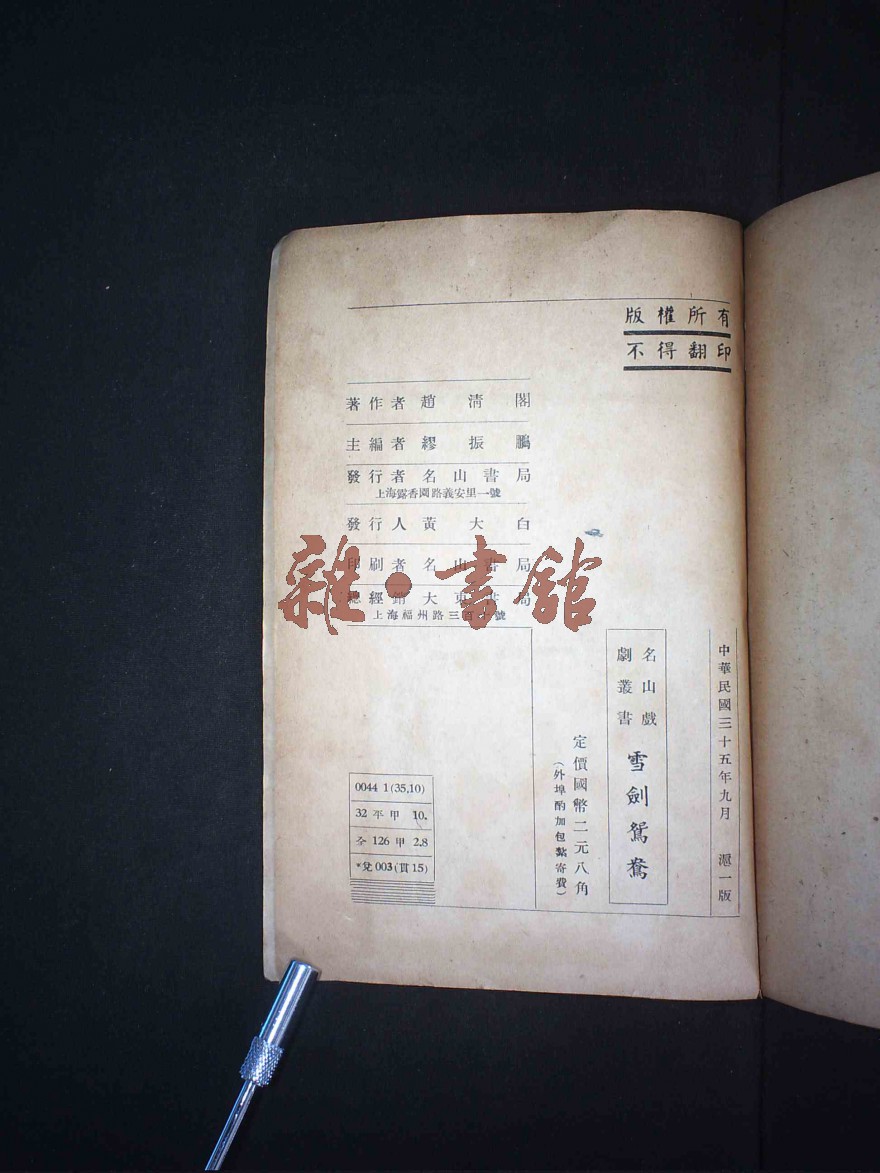 版權所有
不得翻印
中華民國三十五年九月 滬一版
名山戲
劇叢書
雪劍鴛鴦
定價國幣二元八角
(外埠酌加包紮寄費)
著作者 趙清閣
主編者 繆振鵬
發行者 名山書局
上海露香園路義安里一號
發行人 黃大白
印刷者 名山書局
總經銷 大東書局
上海福州路三百十號
0044 1(35,10)
32 平 甲 10.
仝 126 甲 2.8
*兌 003(貫15)
雜·書館